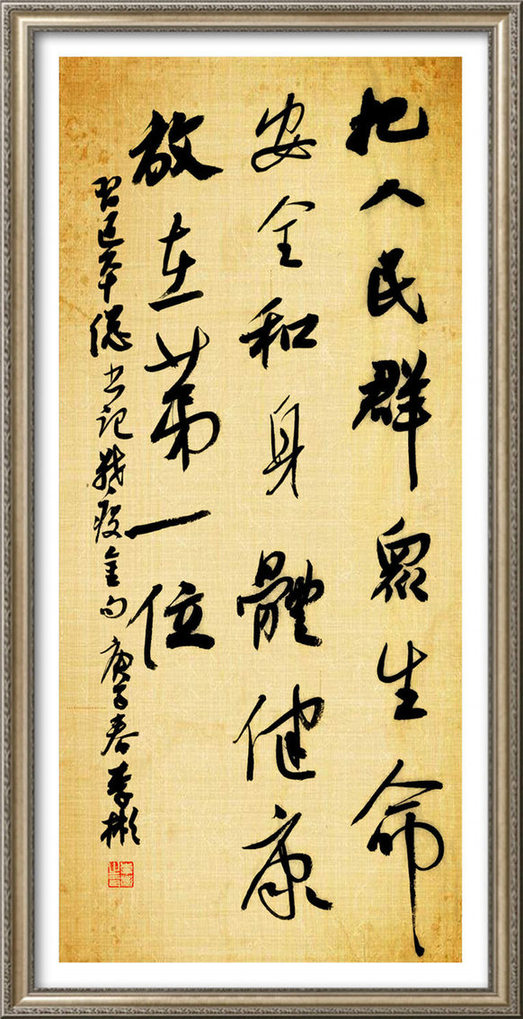 把人民群眾生命
安全和身體健康
放在第一位
习近平總书记战疫金句 庚子春 李彬